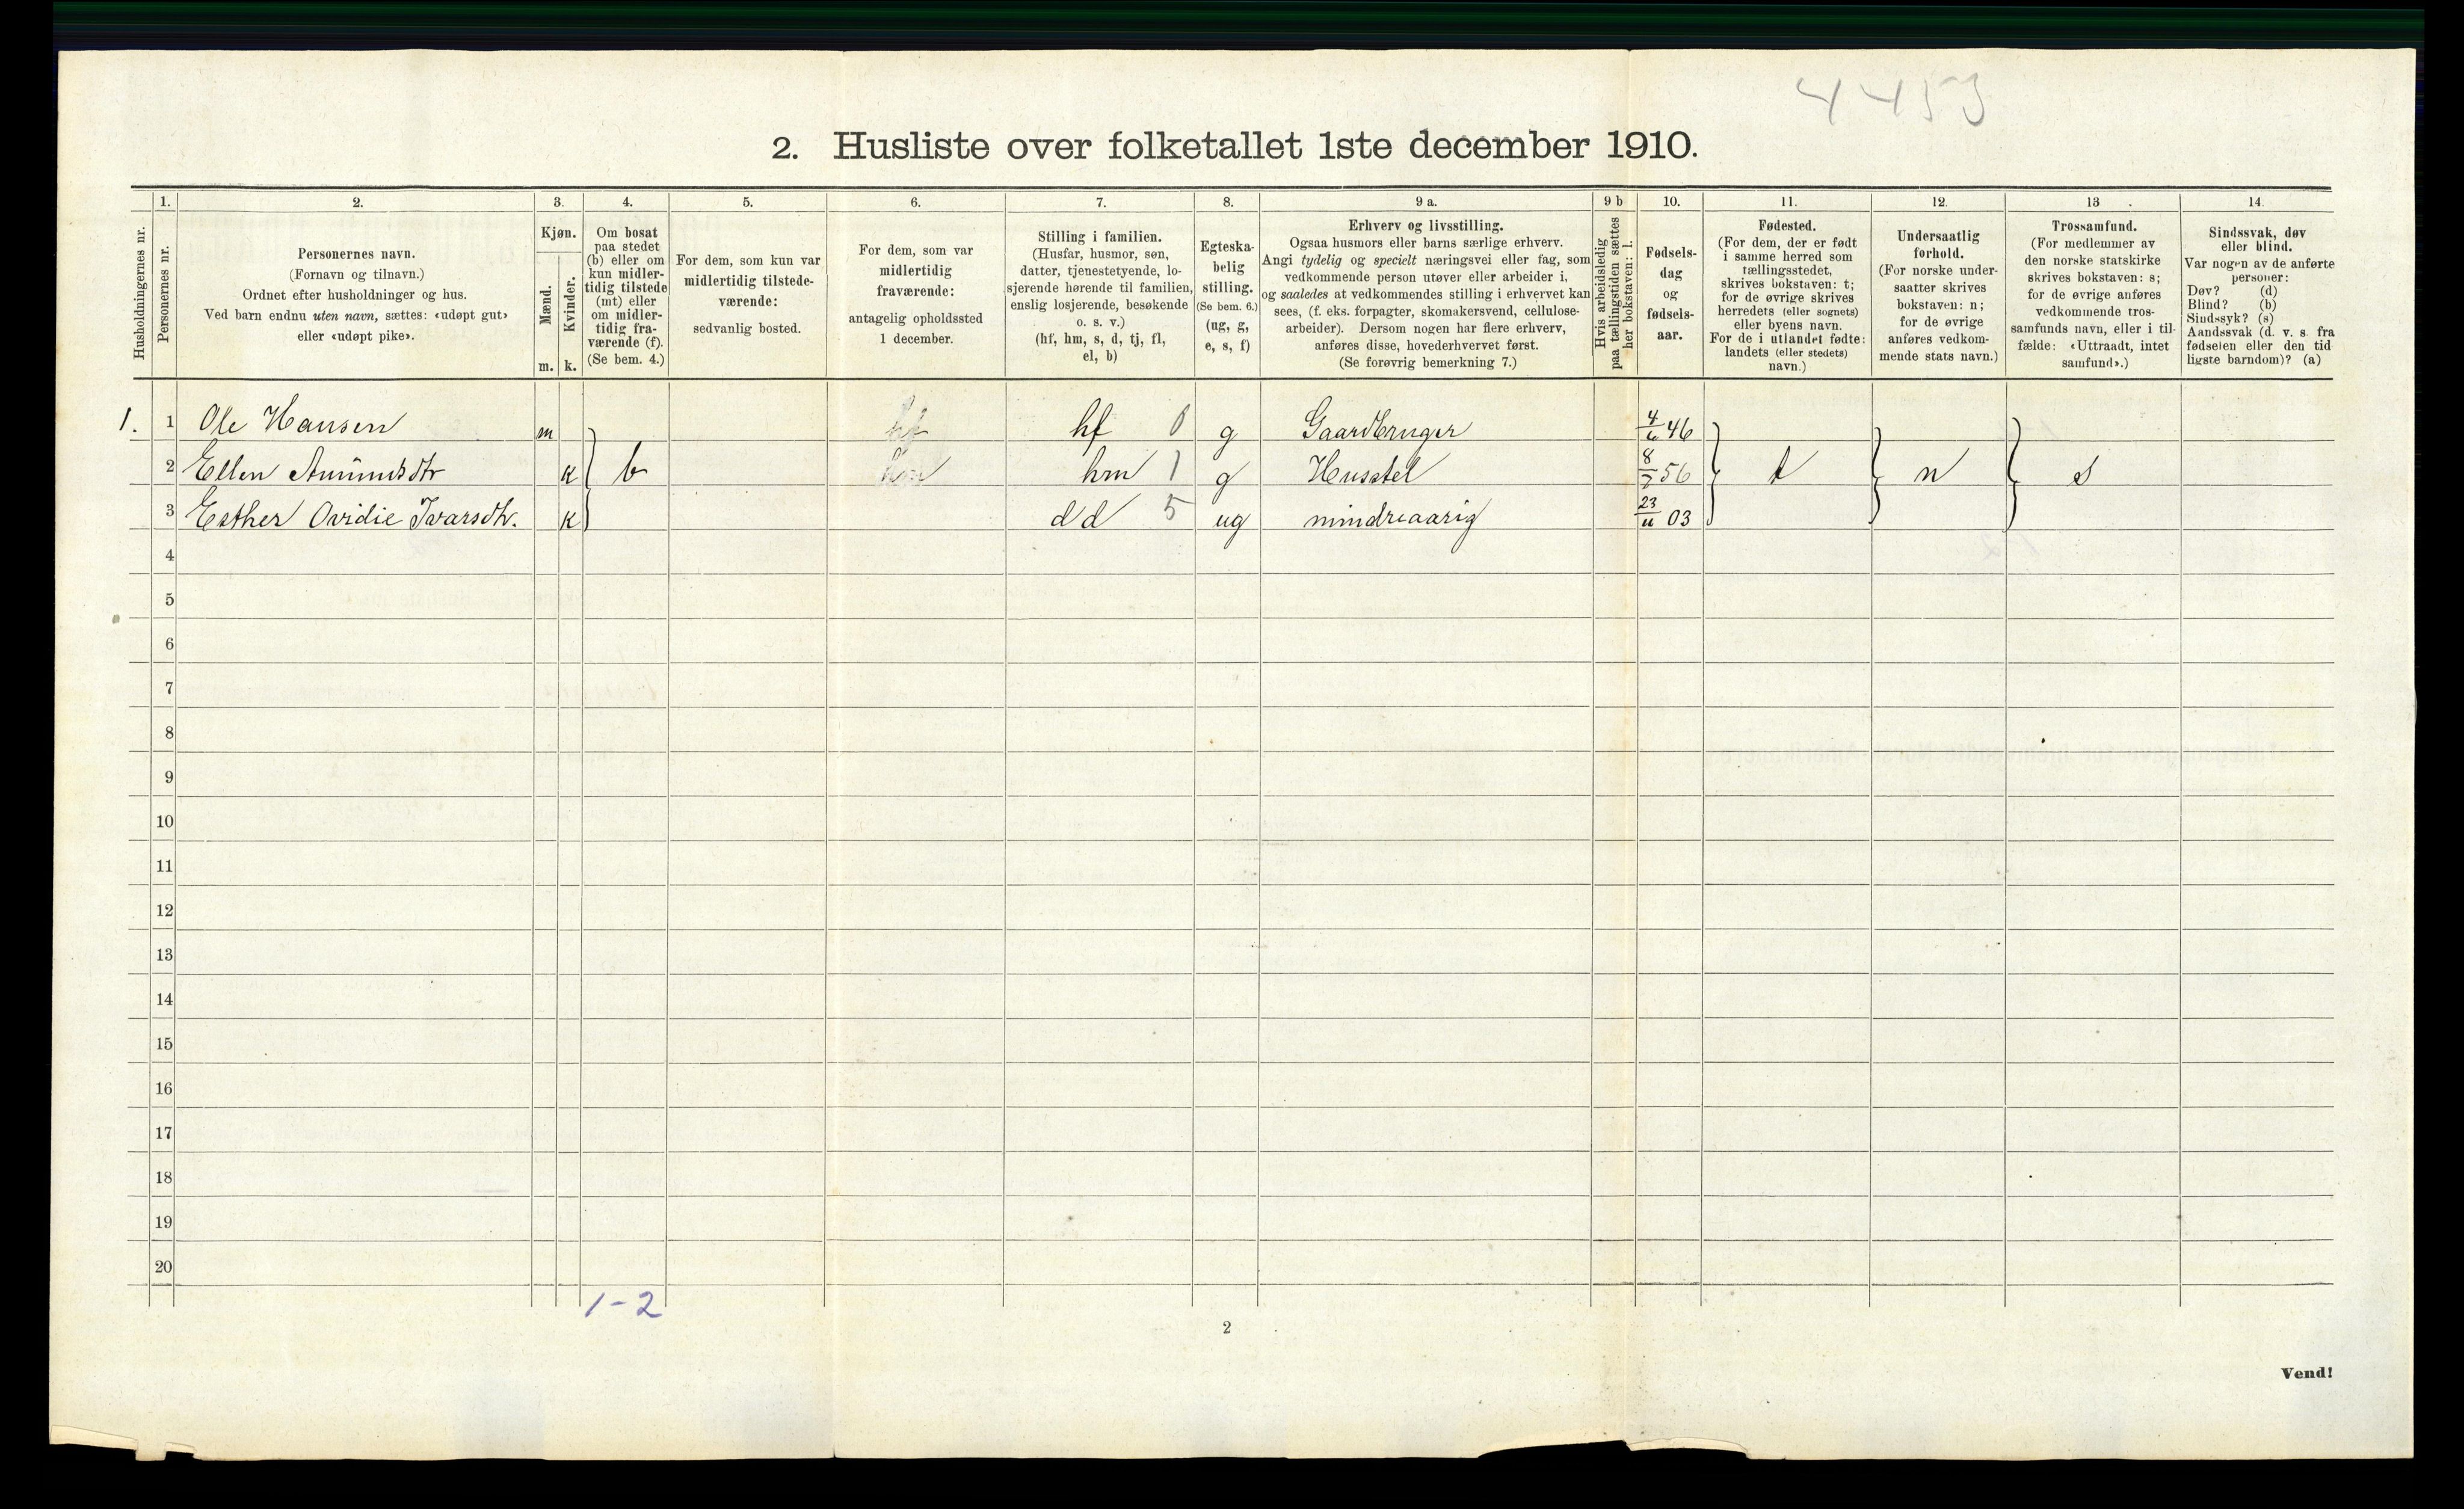 4453
2. Husliste over folketallet 1ste december 1910.
Husholdningernes nr.
1.
Personernes nr.
2.
Personernes navn.
(Fornavn og tilnavn.)
Ordnet efter husholdninger og hus.
Ved barn endnu uten navn, sættes: «udøpt gut»
eller «udøpt pike».
3.
Kjøn.
Mænd.
Kvinder.
m. k.
4.
Om bosat
paa stedet
(b) eller om
kun midler-
tidig tilstede
(mt) eller
om midler-
tidig fra-
værende (f).
(Se bem. 4.)
5.
For dem, som kun var
midlertidig tilstede-
værende:
sedvanlig bosted.
6.
For dem, som var
midlertidig
fraværende:
antagelig opholdssted
1 december.
7.
Stilling i familien.
(Husfar, husmor, søn,
datter, tjenestetyende, lo-
sjerende hørende til familien,
enslig losjerende, besøkende
o. s. v.)
(hf, hm, s, d, tj, fl,
el, b)
8.
Egteska-
belig
stilling.
(Se bem. 6.)
(ug, g,
e, s, f)
9 a.
Erhverv og livsstilling.
Ogsaa husmors eller barns særlige erhverv.
Angi tydelig og specielt næringsvei eller fag, som
vedkommende person utøver eller arbeider i,
og saaledes at vedkommendes stilling i erhvervet kan
sees, (f. eks. forpagter, skomakersvend, cellulose-
arbeider). Dersom nogen har flere erhverv,
anføres disse, hovederhvervet først.
(Se forøvrig bemerkning 7.)
9 b
Hvis arbeidsledig
paa tællingstiden sættes
her bokstaven: l.
10.
Fødsels-
dag
og
fødsels-
aar.
11.
Fødested.
(For dem, der er født
i samme herred som
tællingsstedet,
skrives bokstaven: t;
for de øvrige skrives
herredets (eller sognets)
eller byens navn.
For de i utlandet fødte:
landets (eller stedets)
navn.)
12.
Undersaatlig
forhold.
(For norske under-
saatter skrives
bokstaven: n;
for de øvrige
anføres vedkom-
mende stats navn.)
13.
Trossamfund.
(For medlemmer av
den norske statskirke
skrives bokstaven: s;
for de øvrige anføres
vedkommende tros-
samfunds navn, eller i til-
fælde: «Uttraadt, intet
samfund».)
14.
Sindssvak, døv
eller blind.
Var nogen av de anførte
personer:
Døv? (d)
Blind? (b)
Sindssyk? (s)
Aandssvak (d. v. s. fra
fødselen eller den tid
ligste barndom)? (a)
1. 1 Ole Hansen m hf hf 0 g Gaardbruger 4/6 46
2 Ellen Amundsdtr k b hm hm 1 g Husstel 8/2 56 t n s
3 Esther Ovidie Ivarsdtr. k d d 5 ug mindreaarig 23/11 03
4
5
6
7
8
9
10
11
12
13
14
15
16
17
18
19
20
1-2
2
Vend!